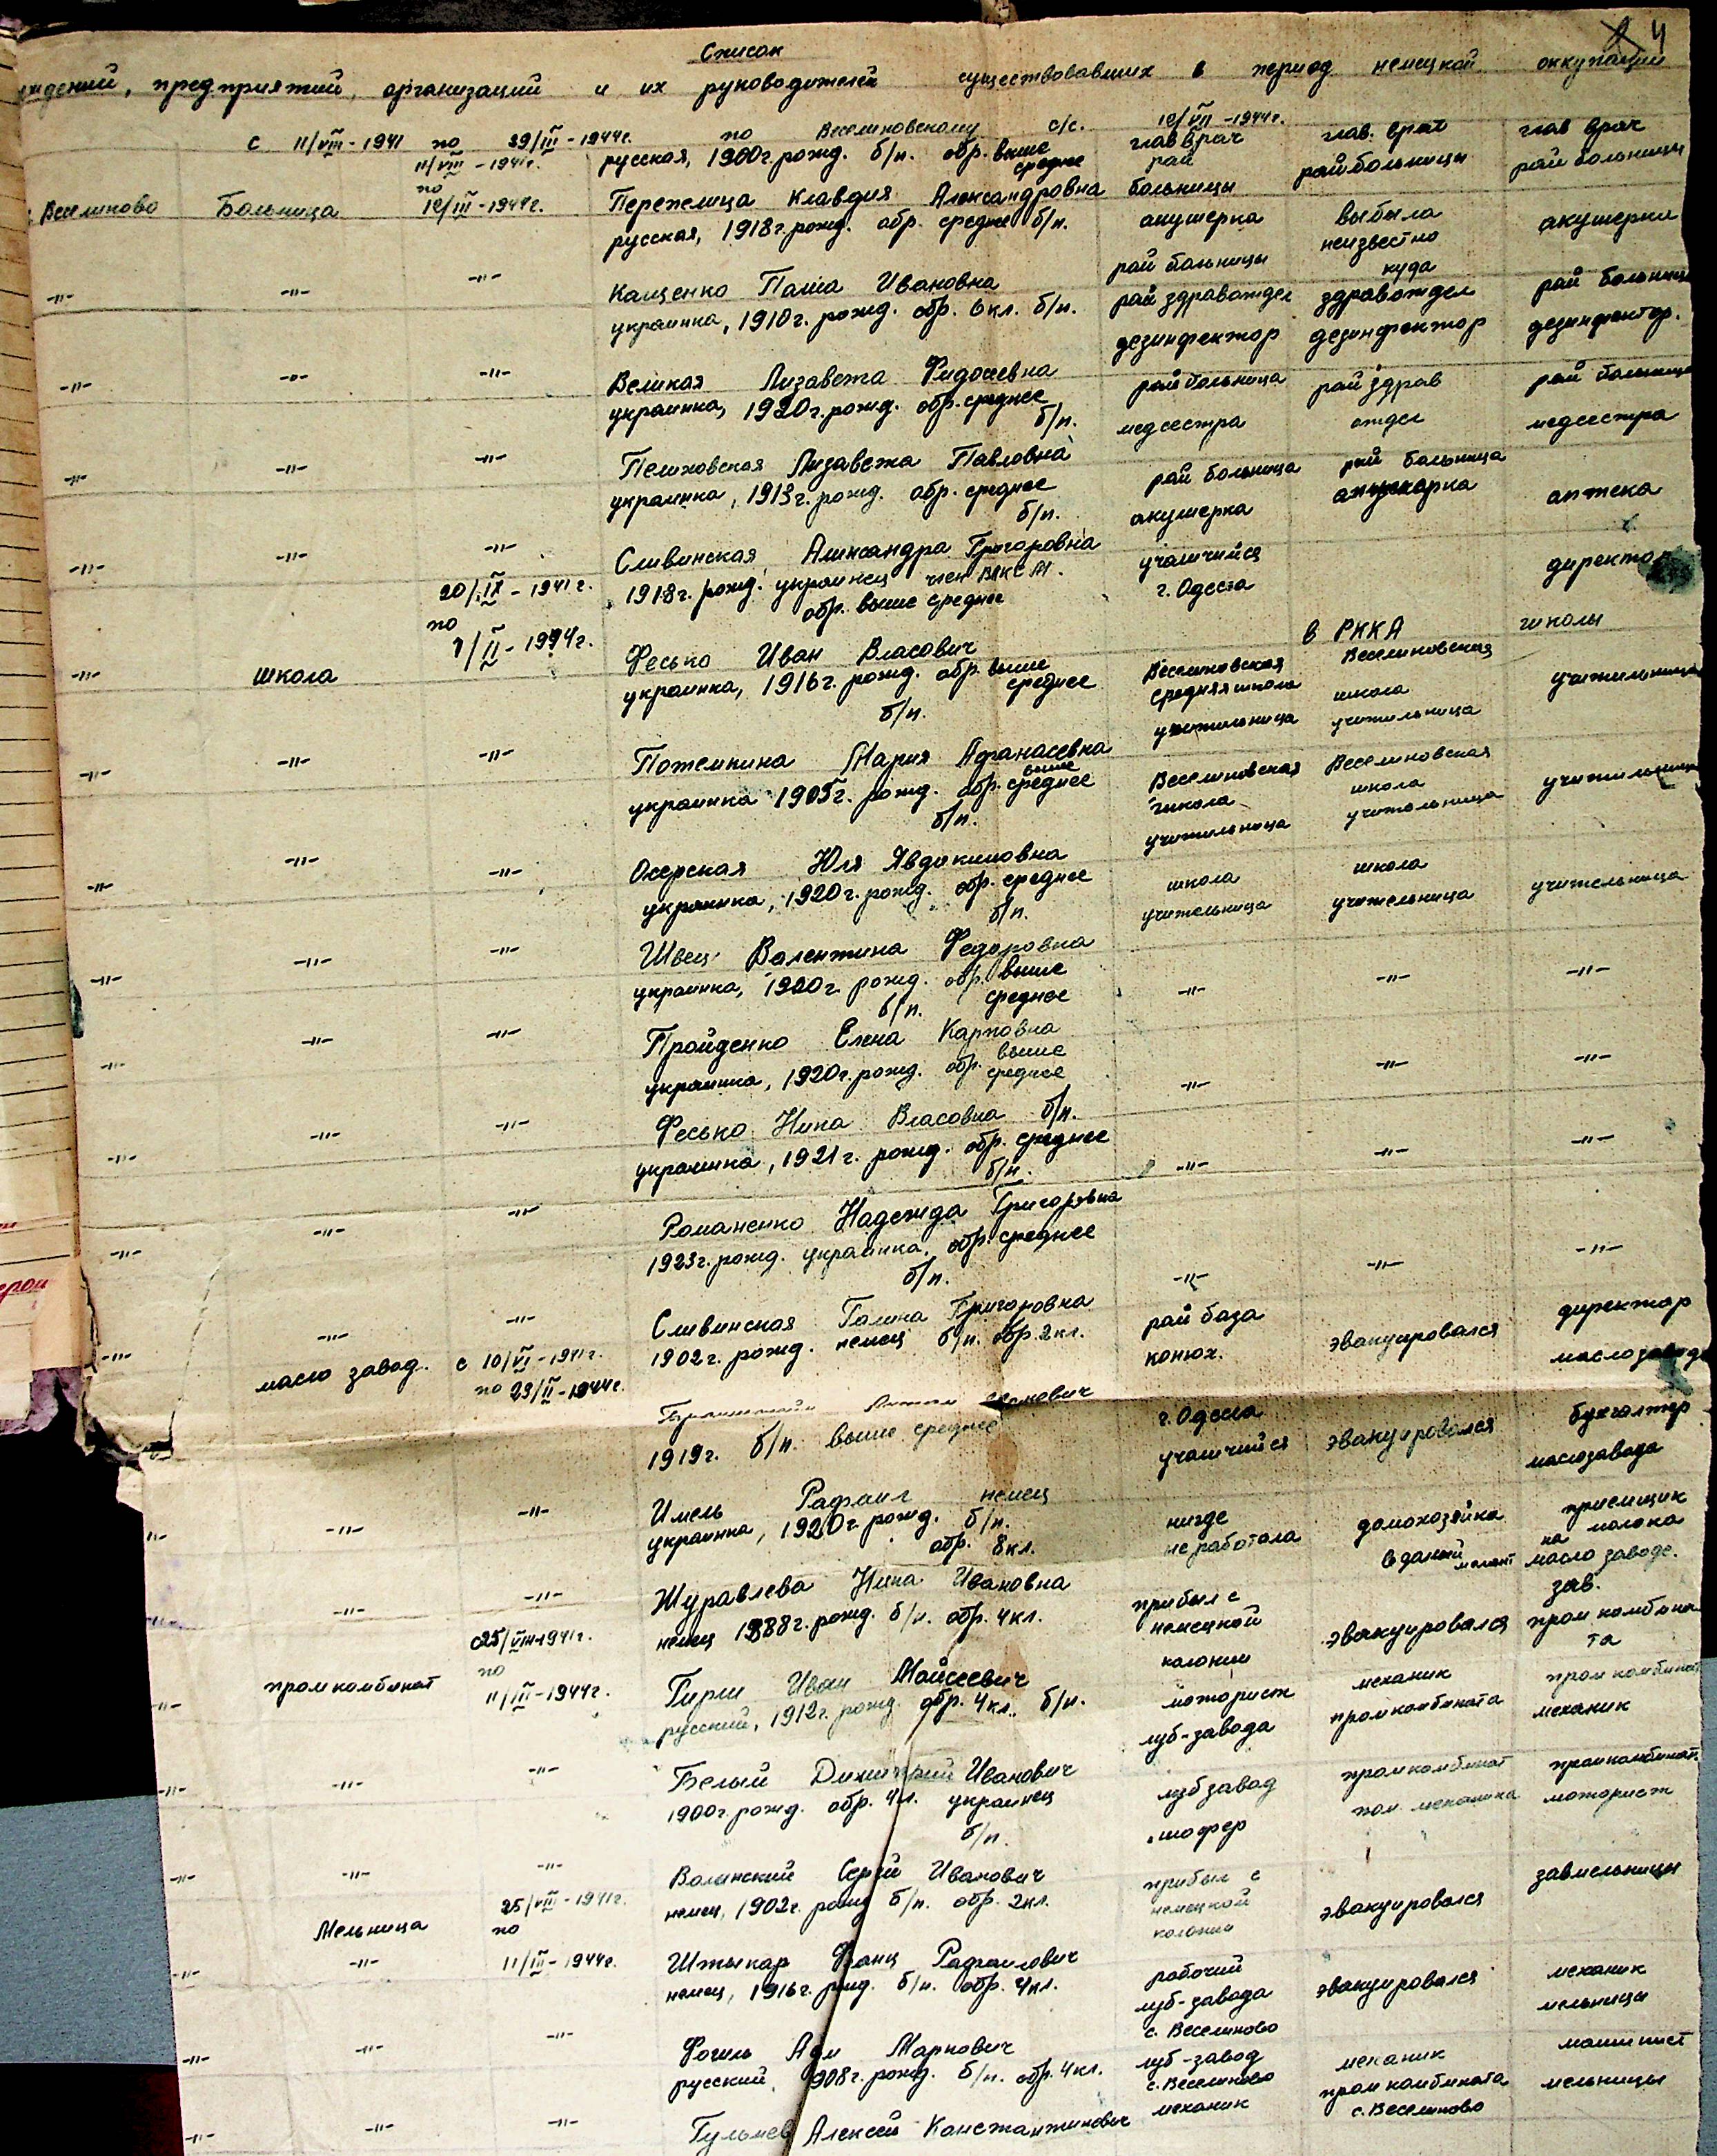 4
Список
предприятий, организаций и их руководителей существовавших в период немецкой оккупации
с 11/VIII-1941 по 29/III-1944г. по Веселиновскому с/с.
с. Веселиново Больница 11/VIII-1941г. по 12/III-1944г.
русская, 1900г. рожд. б/п. обр. выше среднее
Пережелица Клавдия Александровна
глав врач рай больницы
12/VII-1944г.
глав. врач райбольницы
глав врач рай больницы
-"- -"- -"-
русская, 1918г. рожд. обр. среднее б/п.
Кащенко Паша Ивановна
акушерка рай больницы
выбыла неизвестно куда
акушерка рай больницы
-"- -"- -"-
украинка, 1910г. рожд. обр. 6кл. б/п.
Великая Лизавета
рай здравотдел дезинфектор
здравотдел дезинфектор
дезинфектор.
-"- -"- -"-
украинка, 1920г. рожд. обр. среднее б/п.
Пелиховская Лизавета Павловна
рай больница медсестра
рай здрав отдел
рай больница медсестра
-"- -"- -"-
украинка, 1913г. рожд. обр. среднее б/п.
Сливинская Александра Григоровна
рай больница акушерка
рай больница
аптека
-"- школа 20/IX-1941г. по 1/II-1944г.
1918г. рожд. украинец член ВЛКСМ. обр. выше среднее
Фесько Иван Власович
учащийся г. Одесса
в РККА
директор школы
-"- -"- -"-
украинка, 1916г. рожд. обр. выше среднее б/п.
Потемкина Мария Афанасевна
Веселиновская средняя школа учительница
Веселиновская школа учительница
учительница
-"- -"- -"-
украинка 1905г. рожд. обр. выше среднее б/п.
Озерская Юля Явдокимовна
Веселиновская школа учительница
Веселиновская школа учительница
учительница
-"- -"- -"-
украинка, 1920г. рожд. обр. среднее б/п.
Швец Валентина Федоровна
школа учительница
школа учительница
учительница
-"- -"- -"-
украинка, 1920г. рожд. обр. выше среднее б/п.
Пройденко Елена Карповна
-"- -"- -"-
-"- -"- -"-
украинка, 1920г. рожд. обр. выше среднее
Фесько Нина Власовна б/п.
-"- -"- -"-
-"- -"- -"-
украинка, 1921г. рожд. обр. среднее б/п.
Романенко Надежда Григоровна
-"- -"- -"-
-"- -"- -"-
1923г. рожд. украинка. обр. среднее б/п.
Сливинская Галина Григоровна
-"- -"- -"-
-"- масло завод. с 10/VI-1941г. по 23/II-1944г.
1902г. рожд. немец б/п. обр. 2кл.
рай база конюх.
эвакуировался
директор маслозавода
-"- -"- -"-
1919г. б/п. выше среднее
Имель Рафаил немец
г. Одесса учащийся
эвакуировался
бухгалтер маслозавода
-"- -"- -"-
украинка, 1920г. рожд. б/п. обр. 8кл.
Журавлева Нина Ивановна
нигде не работала
домохозяйка в даный момент
приемщик на молока масло заводе.
-"- промкомбинат с 25/VIII-1941г. по 11/III-1944г.
немец 1888г. рожд. б/п. обр. 4кл.
Гирш Иван Мойсеевич
прибыл с немецкой колонии
эвакуировался
зав. пром комбината
-"- -"- -"-
русский, 1912г. рожд. обр. 4кл. б/п.
Белый Дихитрий Иванович
моторист луб-завода
механик промкомбината
пром комбинат механик
-"- -"- -"-
1900г. рожд. обр. 4кл. украинец б/п.
Волинский Сергй Иванович
лубзавод шофер
промкомбинат пом. механика
промкомбинат. моторист
Мельница 25/VIII-1941г. по 11/III-1944г.
немец, 1902г. рожд б/п. обр. 2кл.
Штыкар Франц Рафаилович
прибыл с немецкой колонии
эвакуировался
завмельницы
-"- -"-
немец, 1916г. рожд. б/п. обр. 4кл.
Фогиль Адм Маркович
рабочий луб-завода с. Веселиново
эвакуировался
механик мельницы
-"- -"- -"-
русский, 1908г. рожд. б/п. обр. 4кл.
Гульмев Алексей Константинович
луб-завод с. Веселиново механик
механик пром комбината с. Веселиново
машинист мельницы
-"- -"- -"-